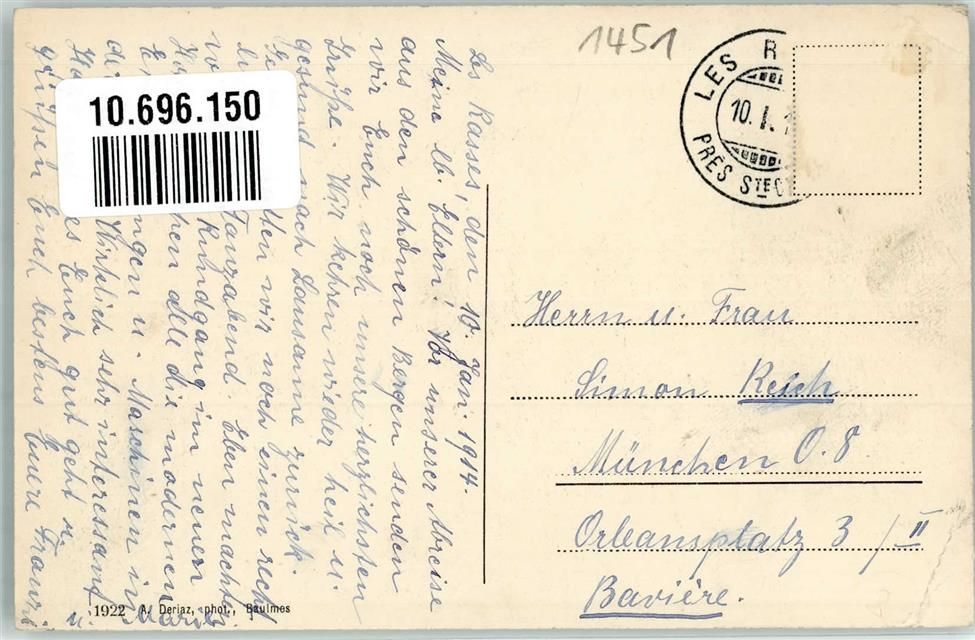 1451
LES R
10. I. 1
PRÈS STE C
10.696.150
Les Rasses, den 10. Jan. 1914.
Meine lb. Eltern! Vor unserer Abreise
aus den schönen Bergen senden
wir Euch noch unsere herzlichsten
Grüße. Wir kehren wieder heil u.
gesund nach Lausanne zurück.
ten wir noch einen recht
Tanzabend. Eben macht
Rundgang im neuen
hen alle die modernen
ngen u. Maschinen in
Wirklich sehr interessant
es Euch gut geht u.
grüßen Euch bestens Euere Franzi
u. Marie
Herrn u. Frau
Simon Reich
München O. 8
Orleansplatz 3 / II
Bavière.
1922 A. Deriaz, phot., Baulmes